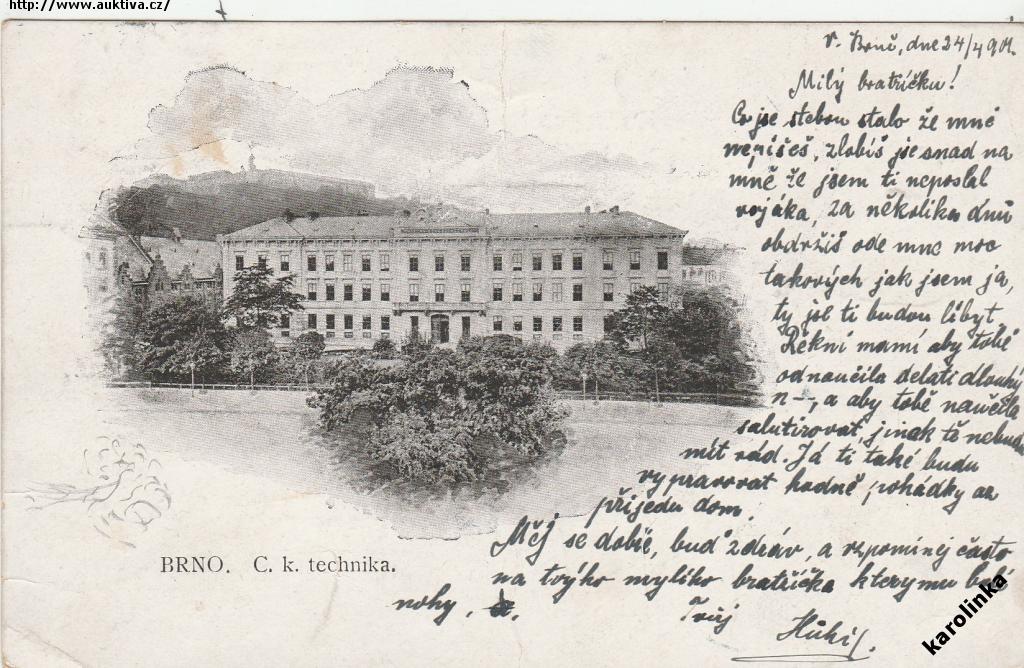 http://www.auktiva.cz/
V. Brně, dne 24/4 901.
Milý bratříčku!
Co jse stebou stalo že mně
nepíšeš, zlobíš jse snad na
mně že jsem ti neposlal
vojáka, za několik dnů
obdržíš ode mne moc
takových jak jsem ja,
ty jse ti budou líbyt
Řekni mamí aby tobě
odnaučila delati dlouhý
n—, a aby tobě naučila
salutírovat, jinak tě nebudu
mít rád. Já ti také budu
vypravovat hodně pohádky až
přijedu dom.
Měj se dobře, buď zdráv, a vzpomínej často
na tvýho mylího bratříčka kterymu bolí
nohy.
Tvůj
BRNO. C. k. technika.
karolinka